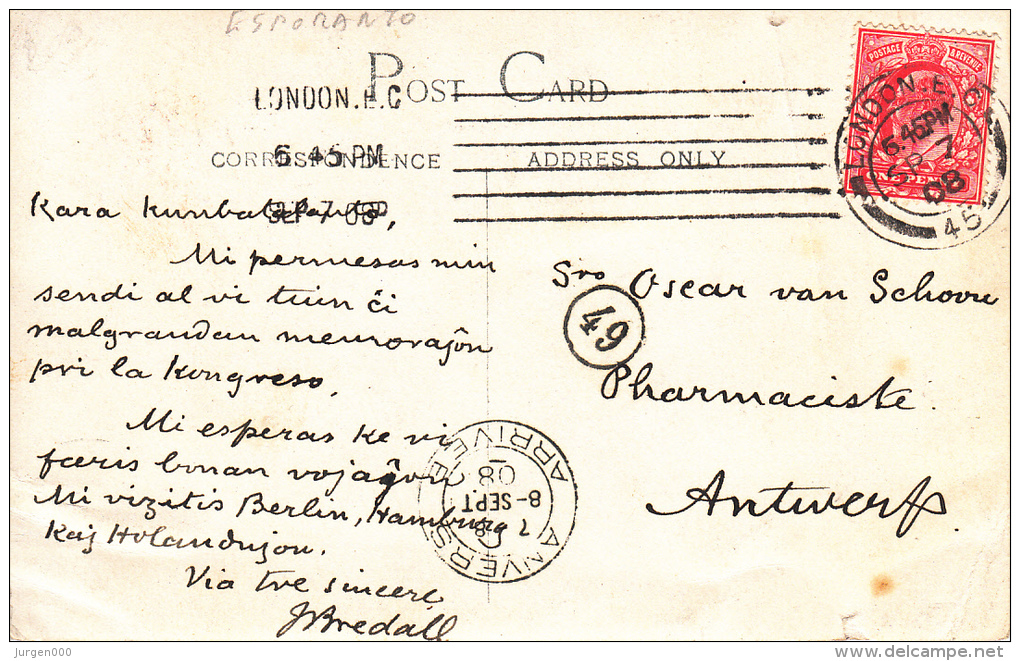 ESPERANTO
POST CARD
LONDON.E.C
6.45 PM
SEP 7 08
CORRESPONDENCE
ADDRESS ONLY
POSTAGE & REVENUE
LONDON.E.C
6.45PM
SP 7
08
45
Kara kunbatalanto,
Mi permesas min
sendi al vi tiun ĉi
malgrandan memoraĵon
pri la Kongreso.
Mi esperas ke vi
faris bonan vojaĝon
Mi vizitis Berlin, Hamburg
Kaj Holandujon.
Via tre sincere,
JBredall
Sro Oscar van Schoore
49
Pharmaciste
Antwerp.
ANVERS
ARRIVEE
8-SEPT
08
Jurgen000